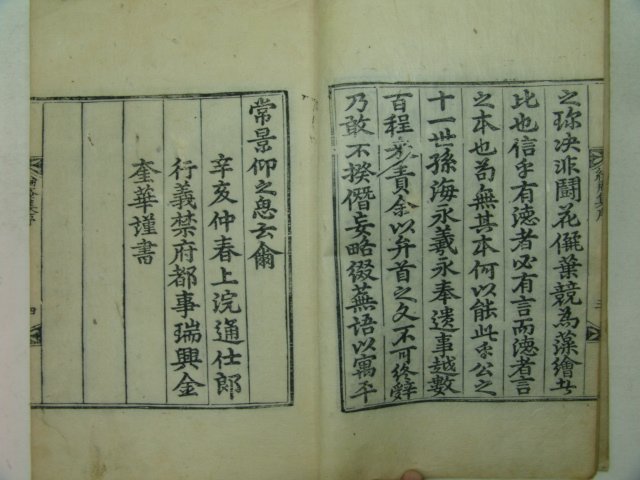 之珎决非鬪花儷葉競為藻繪者
比也信乎有德者必有言而德者言
之本也苟無其本何以能此乎公之
十一世孫海永羲永奉遺事越數
百程來責余以弁首之文不可終辭
乃敢不揆僭妄略綴蕪語以寓平
常景仰之忱云爾
辛亥仲春上浣通仕郎
行義禁府都事瑞興金
奎華謹書
三
四